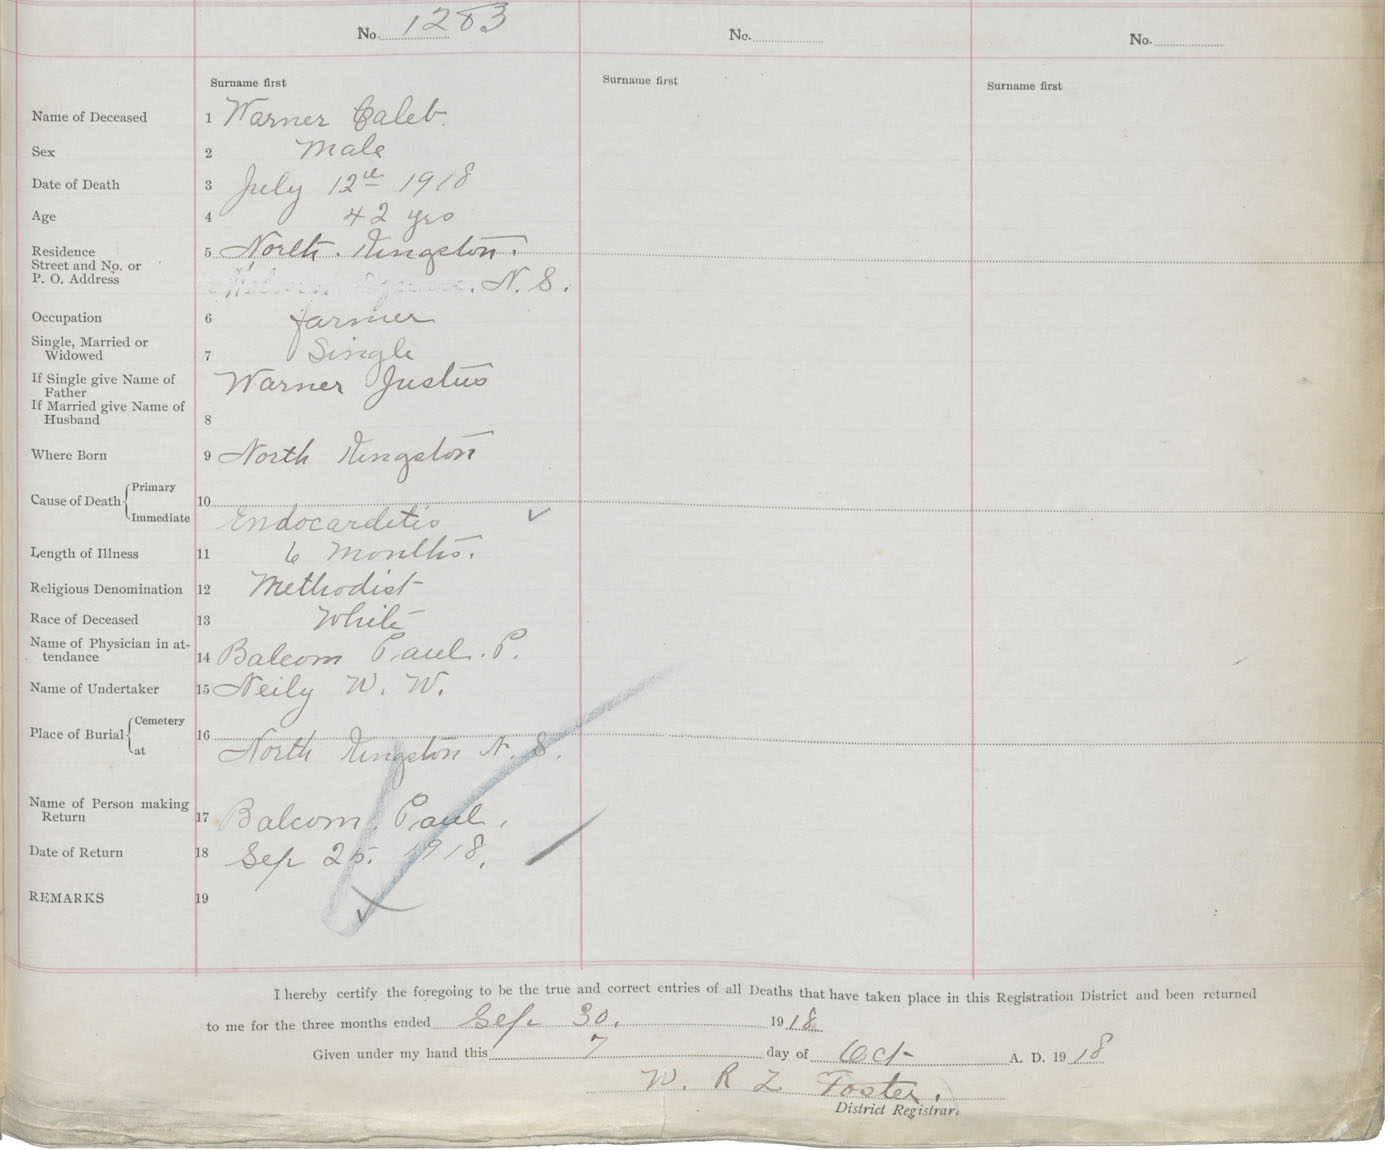 No. 1283 No. No.
Surname first Surname first Surname first
Name of Deceased 1 Warner Caleb.
Sex 2 Male
Date of Death 3 July 12th 1918
Age 4 42 yrs
Residence 5 North Kingston.
Street and No. or
P. O. Address N. S.
Occupation 6 farmer
Single, Married or
Widowed 7 Single
If Single give Name of Warner Justus
Father
If Married give Name of
Husband 8
Where Born 9 North Kingston
Primary
Cause of Death 10
Immediate Endocarditis
Length of Illness 11 6 Months.
Religious Denomination 12 Methodist
Race of Deceased 13 White
Name of Physician in at-
tendance 14 Balcom Paul. P.
Name of Undertaker 15 Neily W. W.
Cemetery
Place of Burial 16
at North Kingston N. S.
Name of Person making
Return 17 Balcom, Paul.
Date of Return 18 Sep 25. 1918.
REMARKS 19
I hereby certify the foregoing to be the true and correct entries of all Deaths that have taken place in this Registration District and been returned
to me for the three months ended Sep 30. 1918
Given under my hand this 7 day of Oct A. D. 1918
W. R Z Foster.
District Registrar.